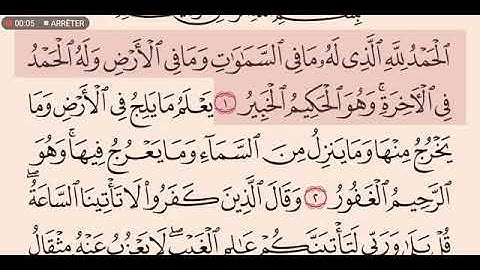 00:05 ■ ARRÊTER
ٱلْحَمْدُ لِلَّهِ ٱلَّذِى لَهُۥ مَا فِى ٱلسَّمَٰوَٰتِ وَمَا فِى ٱلْأَرْضِ وَلَهُ ٱلْحَمْدُ
فِى ٱلْءَاخِرَةِ ۚ وَهُوَ ٱلْحَكِيمُ ٱلْخَبِيرُ ١ يَعْلَمُ مَا يَلِجُ فِى ٱلْأَرْضِ وَمَا
يَخْرُجُ مِنْهَا وَمَا يَنزِلُ مِنَ ٱلسَّمَآءِ وَمَا يَعْرُجُ فِيهَا ۚ وَهُوَ
ٱلرَّحِيمُ ٱلْغَفُورُ ٢ وَقَالَ ٱلَّذِينَ كَفَرُوا۟ لَا تَأْتِينَا ٱلسَّاعَةُ ۖ
قُلْ بَلَىٰ وَرَبِّى لَتَأْتِيَنَّكُمْ عَٰلِمِ ٱلْغَيْبِ ۖ لَا يَعْزُبُ عَنْهُ مِثْقَالُ